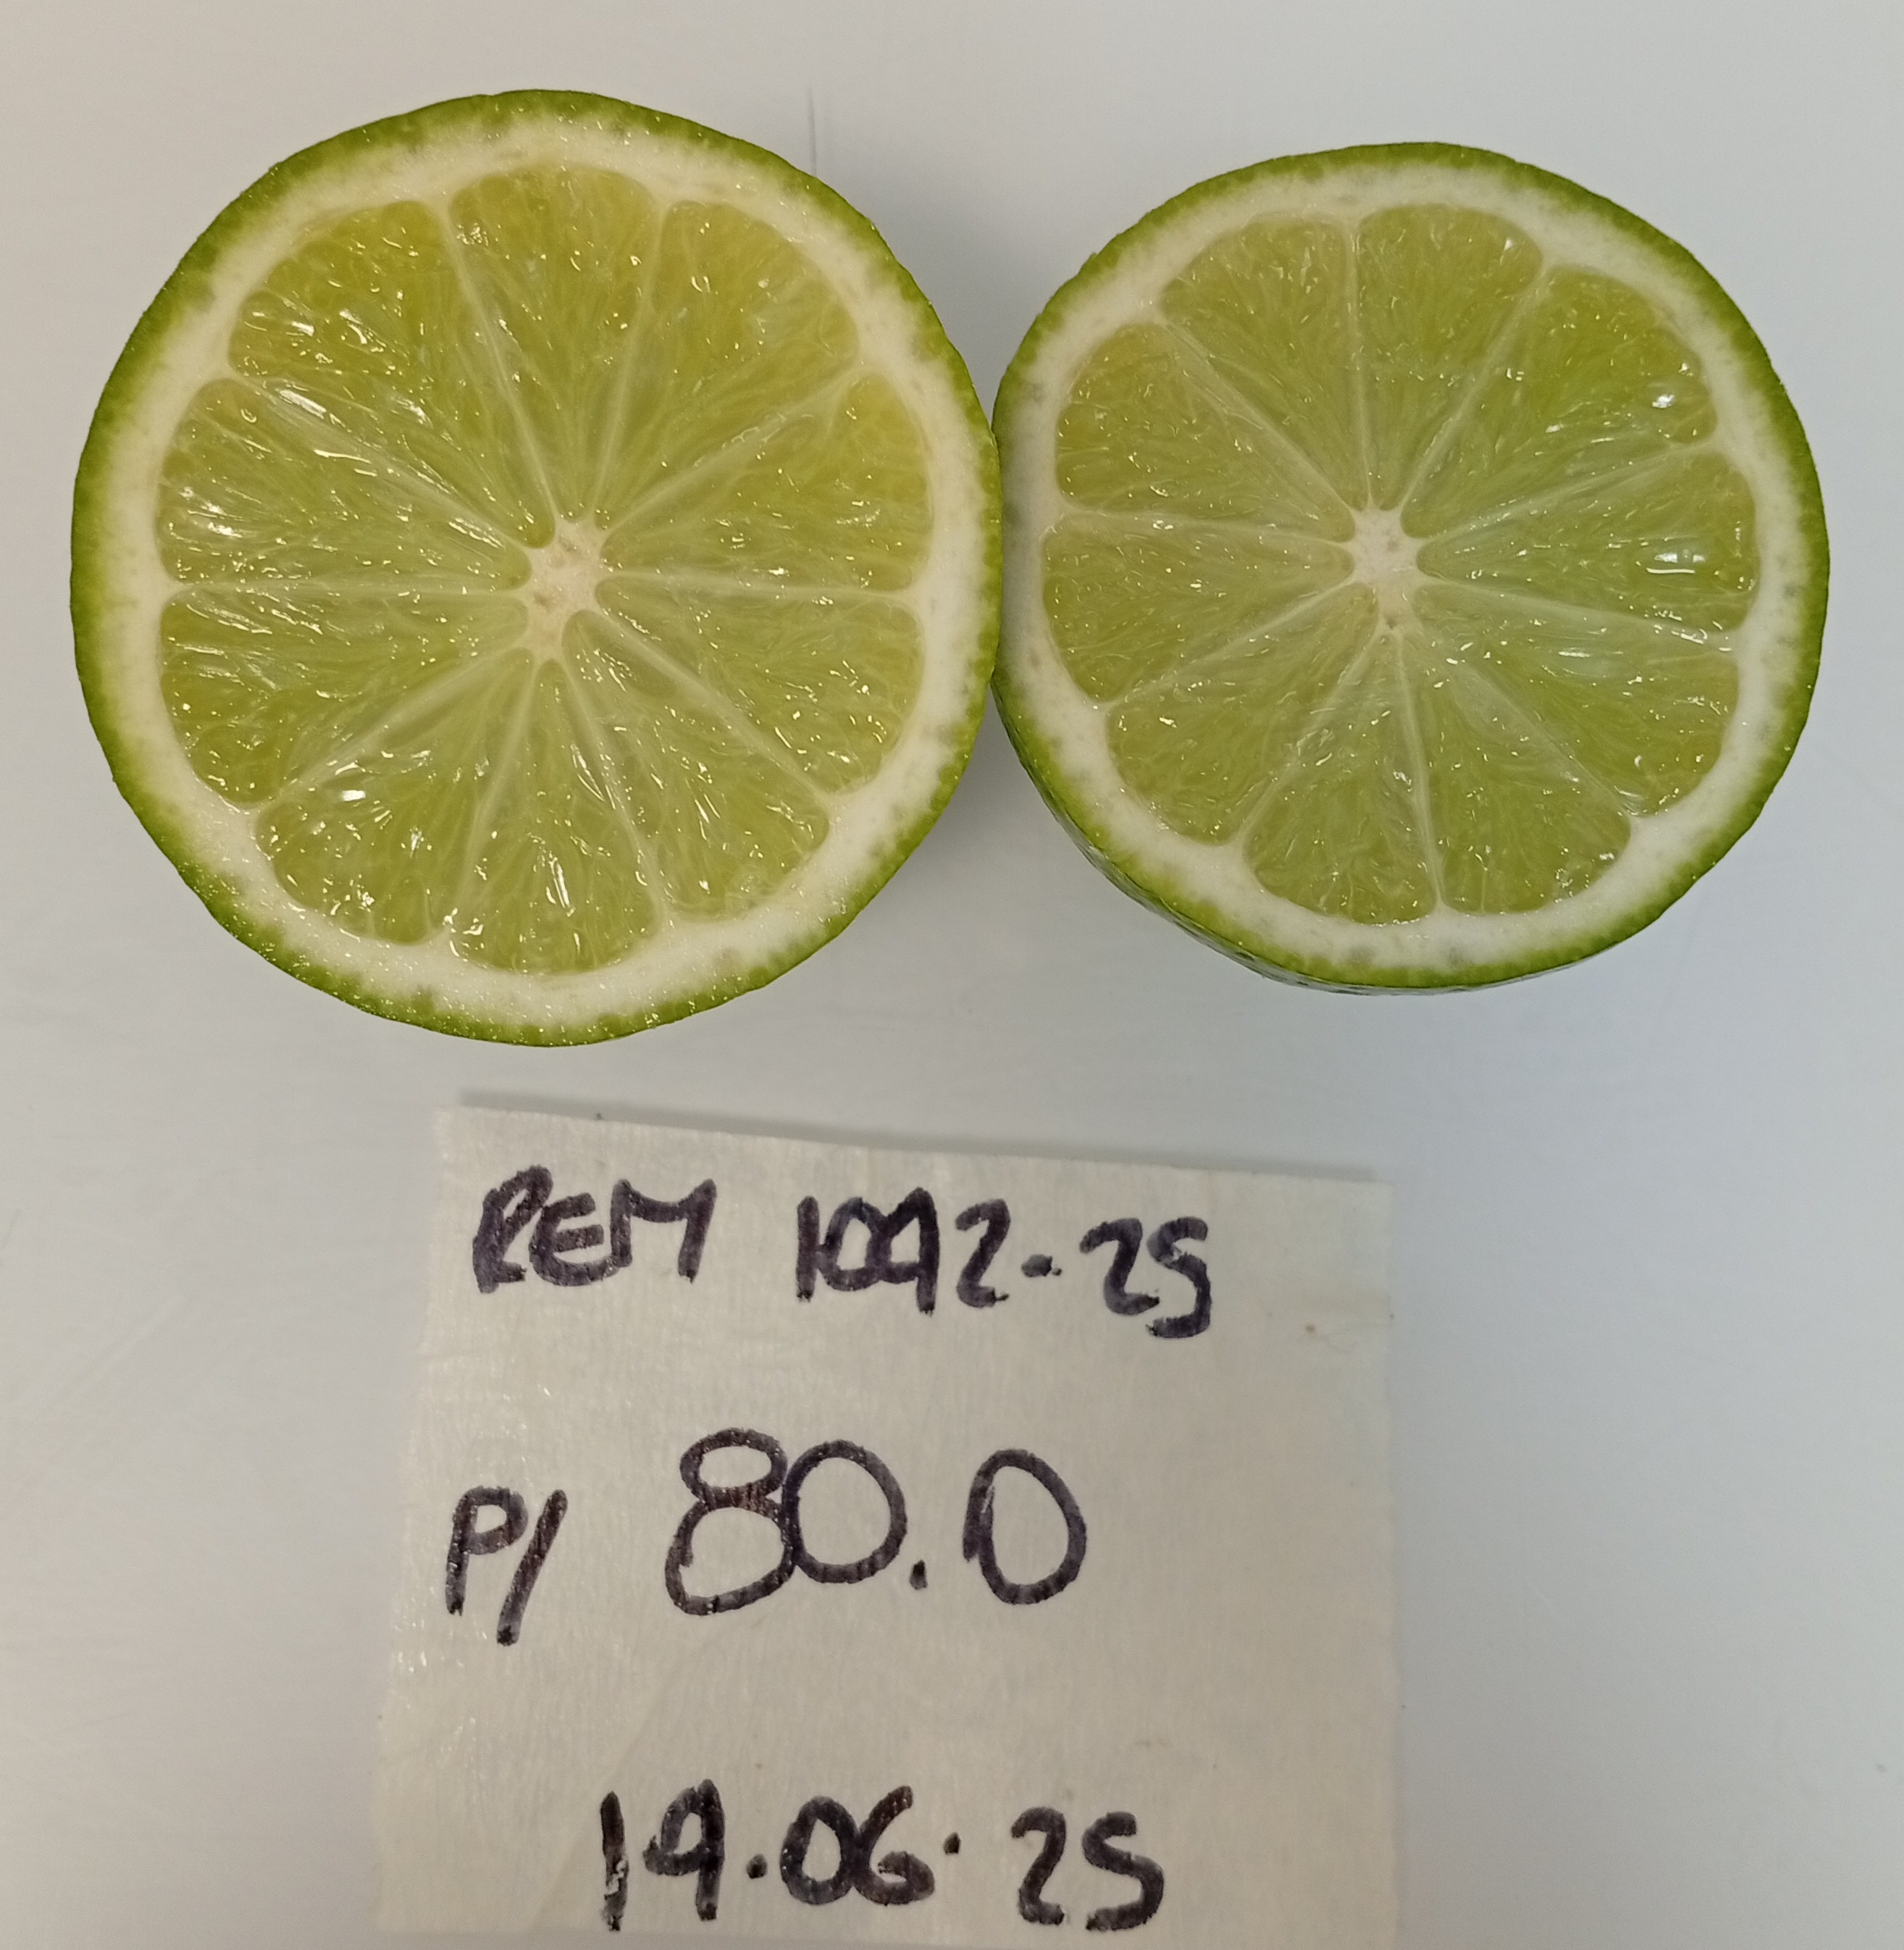 REM 1092-25
P/ 80.0
19.06.25